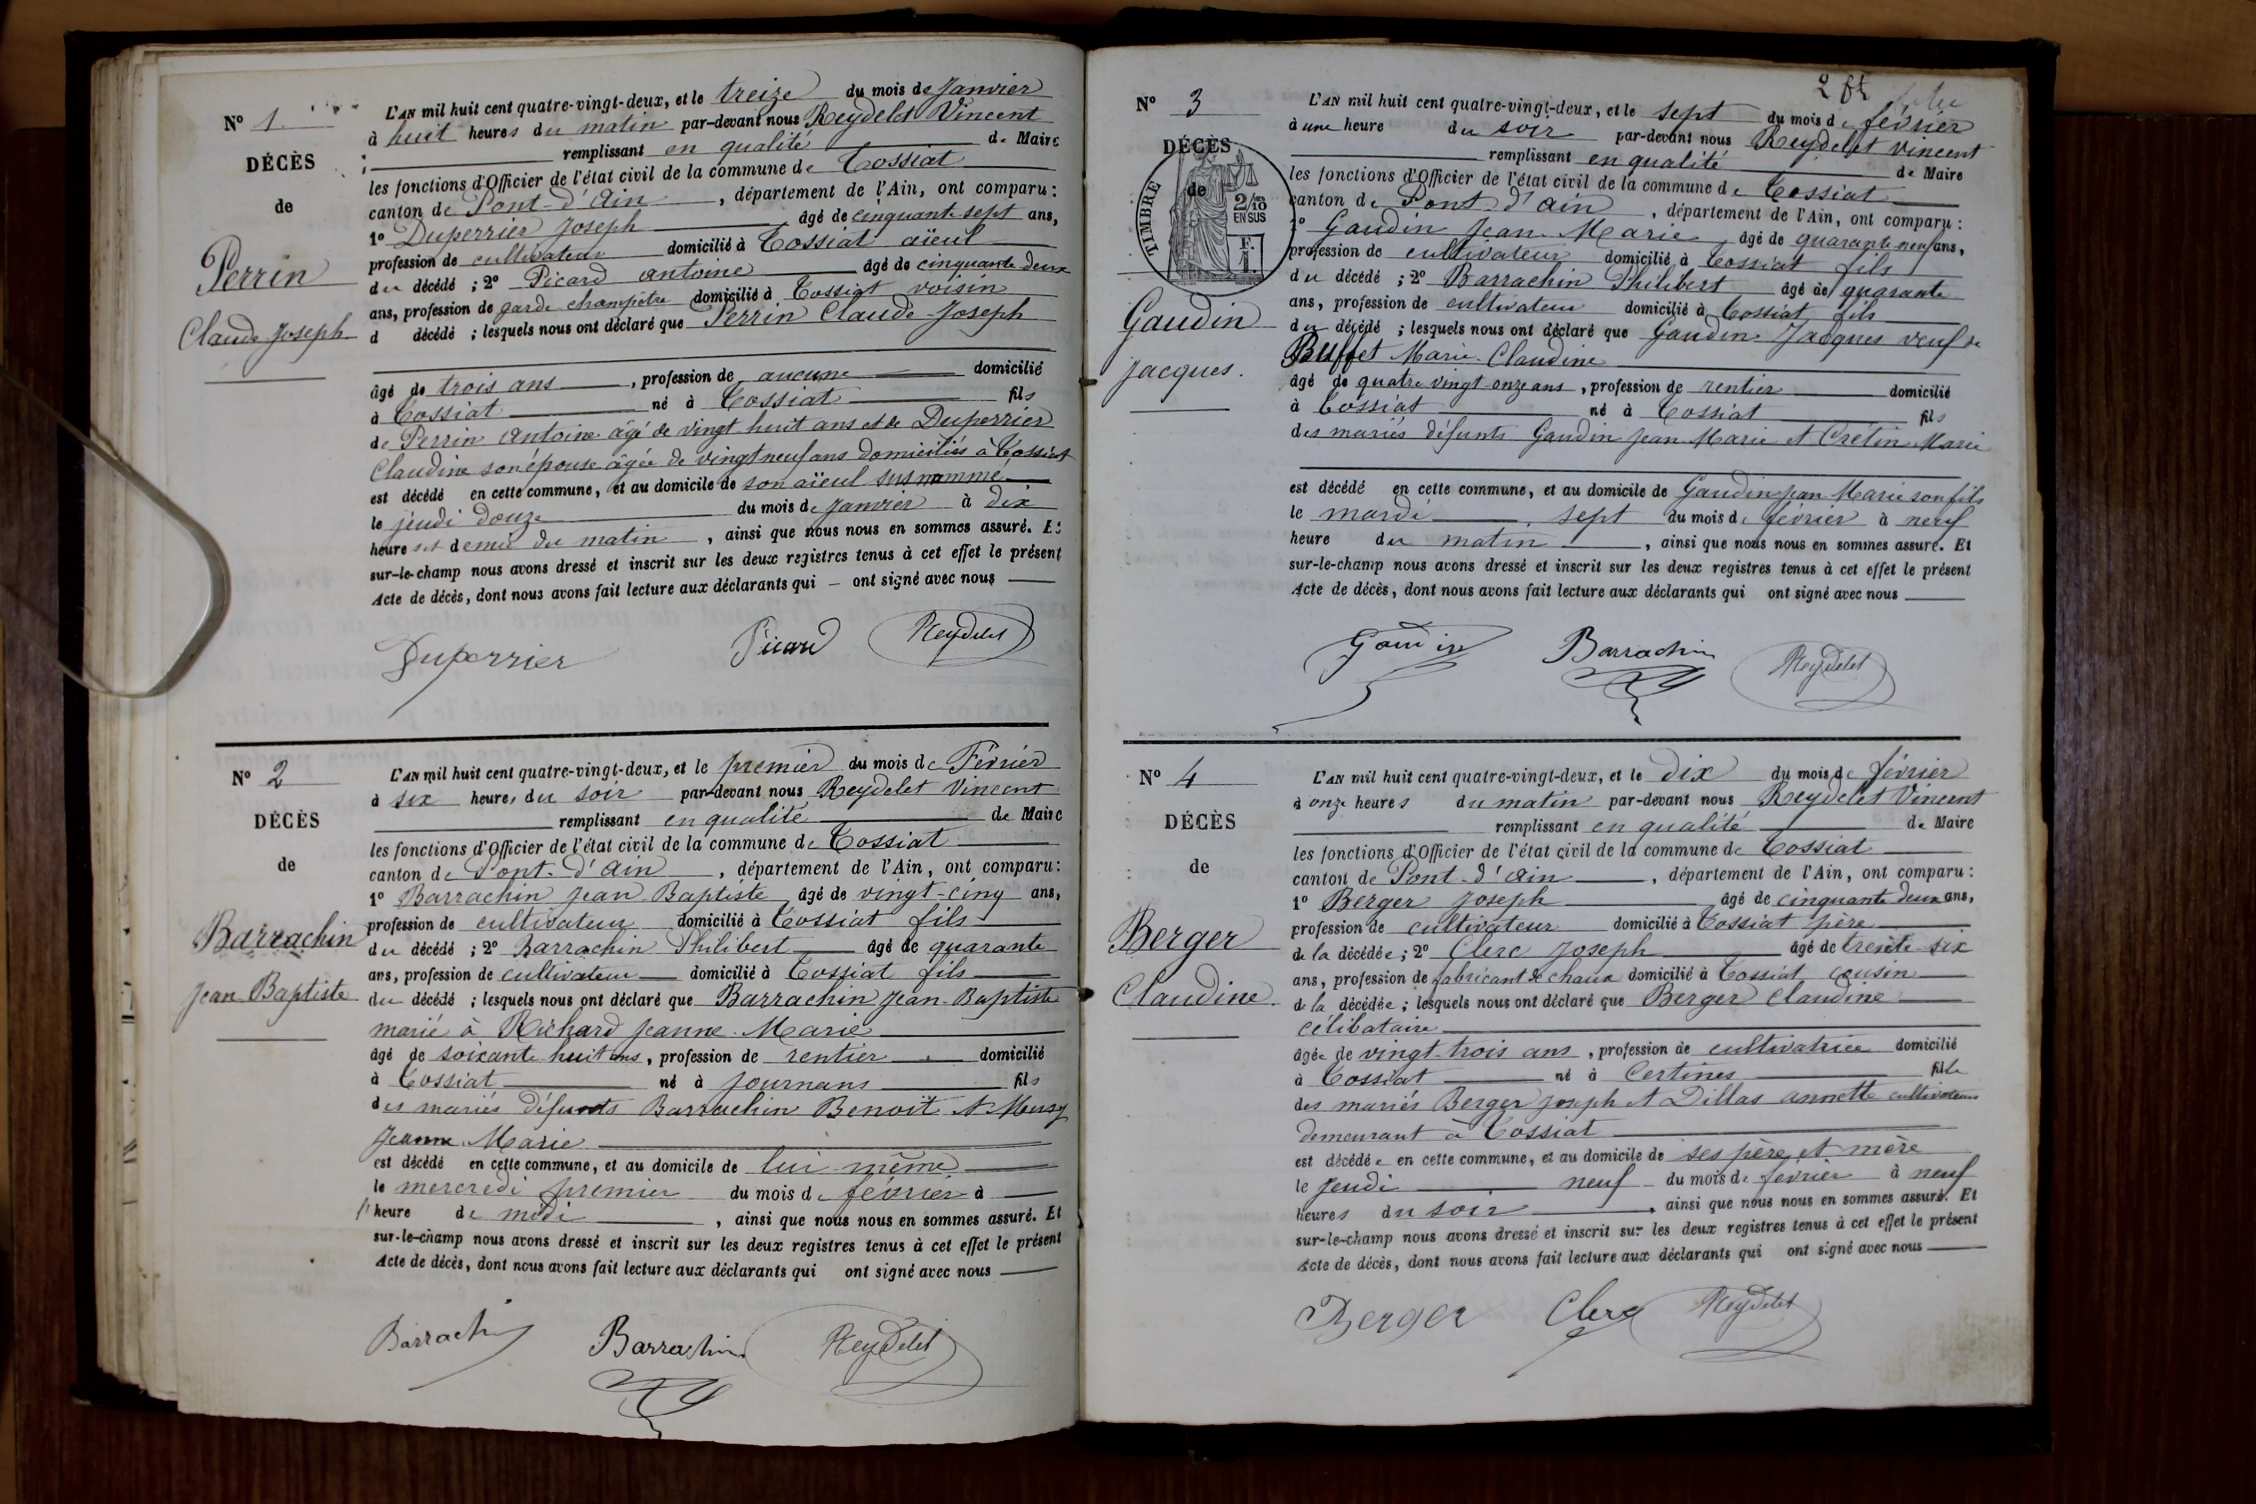 N° 1
DÉCÈS
de
Perrin
Claude Joseph
L'AN mil huit cent quatre-vingt-deux, et le treize du mois de Janvier
à huit heures du matin par-devant nous Reydelet Vincent
remplissant en qualité de Maire
les fonctions d'Officier de l'état civil de la commune de Tossiat
canton de Pont-d'Ain, département de l'Ain, ont comparu :
1° Duperrier Joseph âgé de cinquante-sept ans,
profession de cultivateur domicilié à Tossiat aïeul
du décédé ; 2° Picard antoine âgé de cinquante deux
ans, profession de garde champêtre domicilié à Tossiat voisin
d décédé ; lesquels nous ont déclaré que Perrin Claude-Joseph
âgé de trois ans, profession de aucune domicilié
à Tossiat né à Tossiat fils
de Perrin Antoine âgé de vingt huit ans et de Duperrier
Claudine son épouse âgée de vingt neuf ans domiciliés à Tossiat
est décédé en cette commune, et au domicile de son aïeul susnommé
le jeudi douze du mois de janvier à dix
heures et demie du matin, ainsi que nous nous en sommes assuré. Et
sur-le-champ nous avons dressé et inscrit sur les deux registres tenus à cet effet le présent
Acte de décès, dont nous avons fait lecture aux déclarants qui — ont signé avec nous
Duperrier Picard Reydelet
N° 2
DÉCÈS
de
Barrachin
Jean Baptiste
L'AN mil huit cent quatre-vingt-deux, et le premier du mois de Février
à six heures du soir par-devant nous Reydelet Vincent
remplissant en qualité de Maire
les fonctions d'Officier de l'état civil de la commune de Tossiat
canton de Pont-d'Ain, département de l'Ain, ont comparu :
1° Barrachin Jean Baptiste âgé de vingt-cinq ans,
profession de cultivateur domicilié à Tossiat fils
du décédé ; 2° Barrachin Philibert âgé de quarante
ans, profession de cultivateur domicilié à Tossiat fils
du décédé ; lesquels nous ont déclaré que Barrachin Jean-Baptiste
marié à Richard Jeanne-Marie
âgé de soixante huit ans, profession de rentier domicilié
à Tossiat né à Journans fils
des mariés défunts Barrachin Benoît et
Jeanne Marie
est décédé en cette commune, et au domicile de lui-même
le mercredi premier du mois de février à
l'heure de midi, ainsi que nous nous en sommes assuré. Et
sur-le-champ nous avons dressé et inscrit sur les deux registres tenus à cet effet le présent
Acte de décès, dont nous avons fait lecture aux déclarants qui ont signé avec nous
Barrachin Barrachin Reydelet
2
N° 3
DÉCÈS
de
TIMBRE
2/10
EN SUS
F.
1.
Gaudin
Jacques.
L'AN mil huit cent quatre-vingt-deux, et le sept du mois de février
à une heure du soir par-devant nous Reydelet Vincent
remplissant en qualité de Maire
les fonctions d'Officier de l'état civil de la commune de Tossiat
canton de Pont-d'Ain, département de l'Ain, ont comparu :
1° Gaudin Jean-Marie âgé de quarante-neuf ans,
profession de cultivateur domicilié à Tossiat fils
du décédé ; 2° Barrachin Philibert âgé de quarante
ans, profession de cultivateur domicilié à Tossiat fils
du décédé ; lesquels nous ont déclaré que Gaudin Jacques veuf de
Buffet Marie-Claudine
âgé de quatre vingt onze ans, profession de rentier domicilié
à Tossiat né à Tossiat fils
des mariés défunts Gaudin Jean Marie et Crétin Marie
est décédé en cette commune, et au domicile de Gaudin Jean Marie son fils
le mardi sept du mois de février à neuf
heure du matin, ainsi que nous nous en sommes assuré. Et
sur-le-champ nous avons dressé et inscrit sur les deux registres tenus à cet effet le présent
Acte de décès, dont nous avons fait lecture aux déclarants qui ont signé avec nous
Gaudin Barrachin Reydelet
N° 4
DÉCÈS
de
Berger
Claudine
L'AN mil huit cent quatre-vingt-deux, et le dix du mois de février
à onze heures du matin par-devant nous Reydelet Vincent
remplissant en qualité de Maire
les fonctions d'Officier de l'état civil de la commune de Tossiat
canton de Pont-d'Ain, département de l'Ain, ont comparu :
1° Berger Joseph âgé de cinquante deux ans,
profession de cultivateur domicilié à Tossiat père
de la décédée ; 2° Clerc Joseph âgé de trente-six
ans, profession de fabricant de chaux domicilié à Tossiat cousin
de la décédée ; lesquels nous ont déclaré que Berger Claudine
célibataire
âgée de vingt-trois ans, profession de cultivatrice domicilié
à Tossiat né à Certines fille
des mariés Berger Joseph et Dillas annette cultivateurs
demeurant à Tossiat
est décédée en cette commune, et au domicile de ses père et mère
le jeudi neuf du mois de février à neuf
heures du soir, ainsi que nous nous en sommes assuré. Et
sur-le-champ nous avons dressé et inscrit sur les deux registres tenus à cet effet le présent
Acte de décès, dont nous avons fait lecture aux déclarants qui ont signé avec nous
Berger Clerc Reydelet